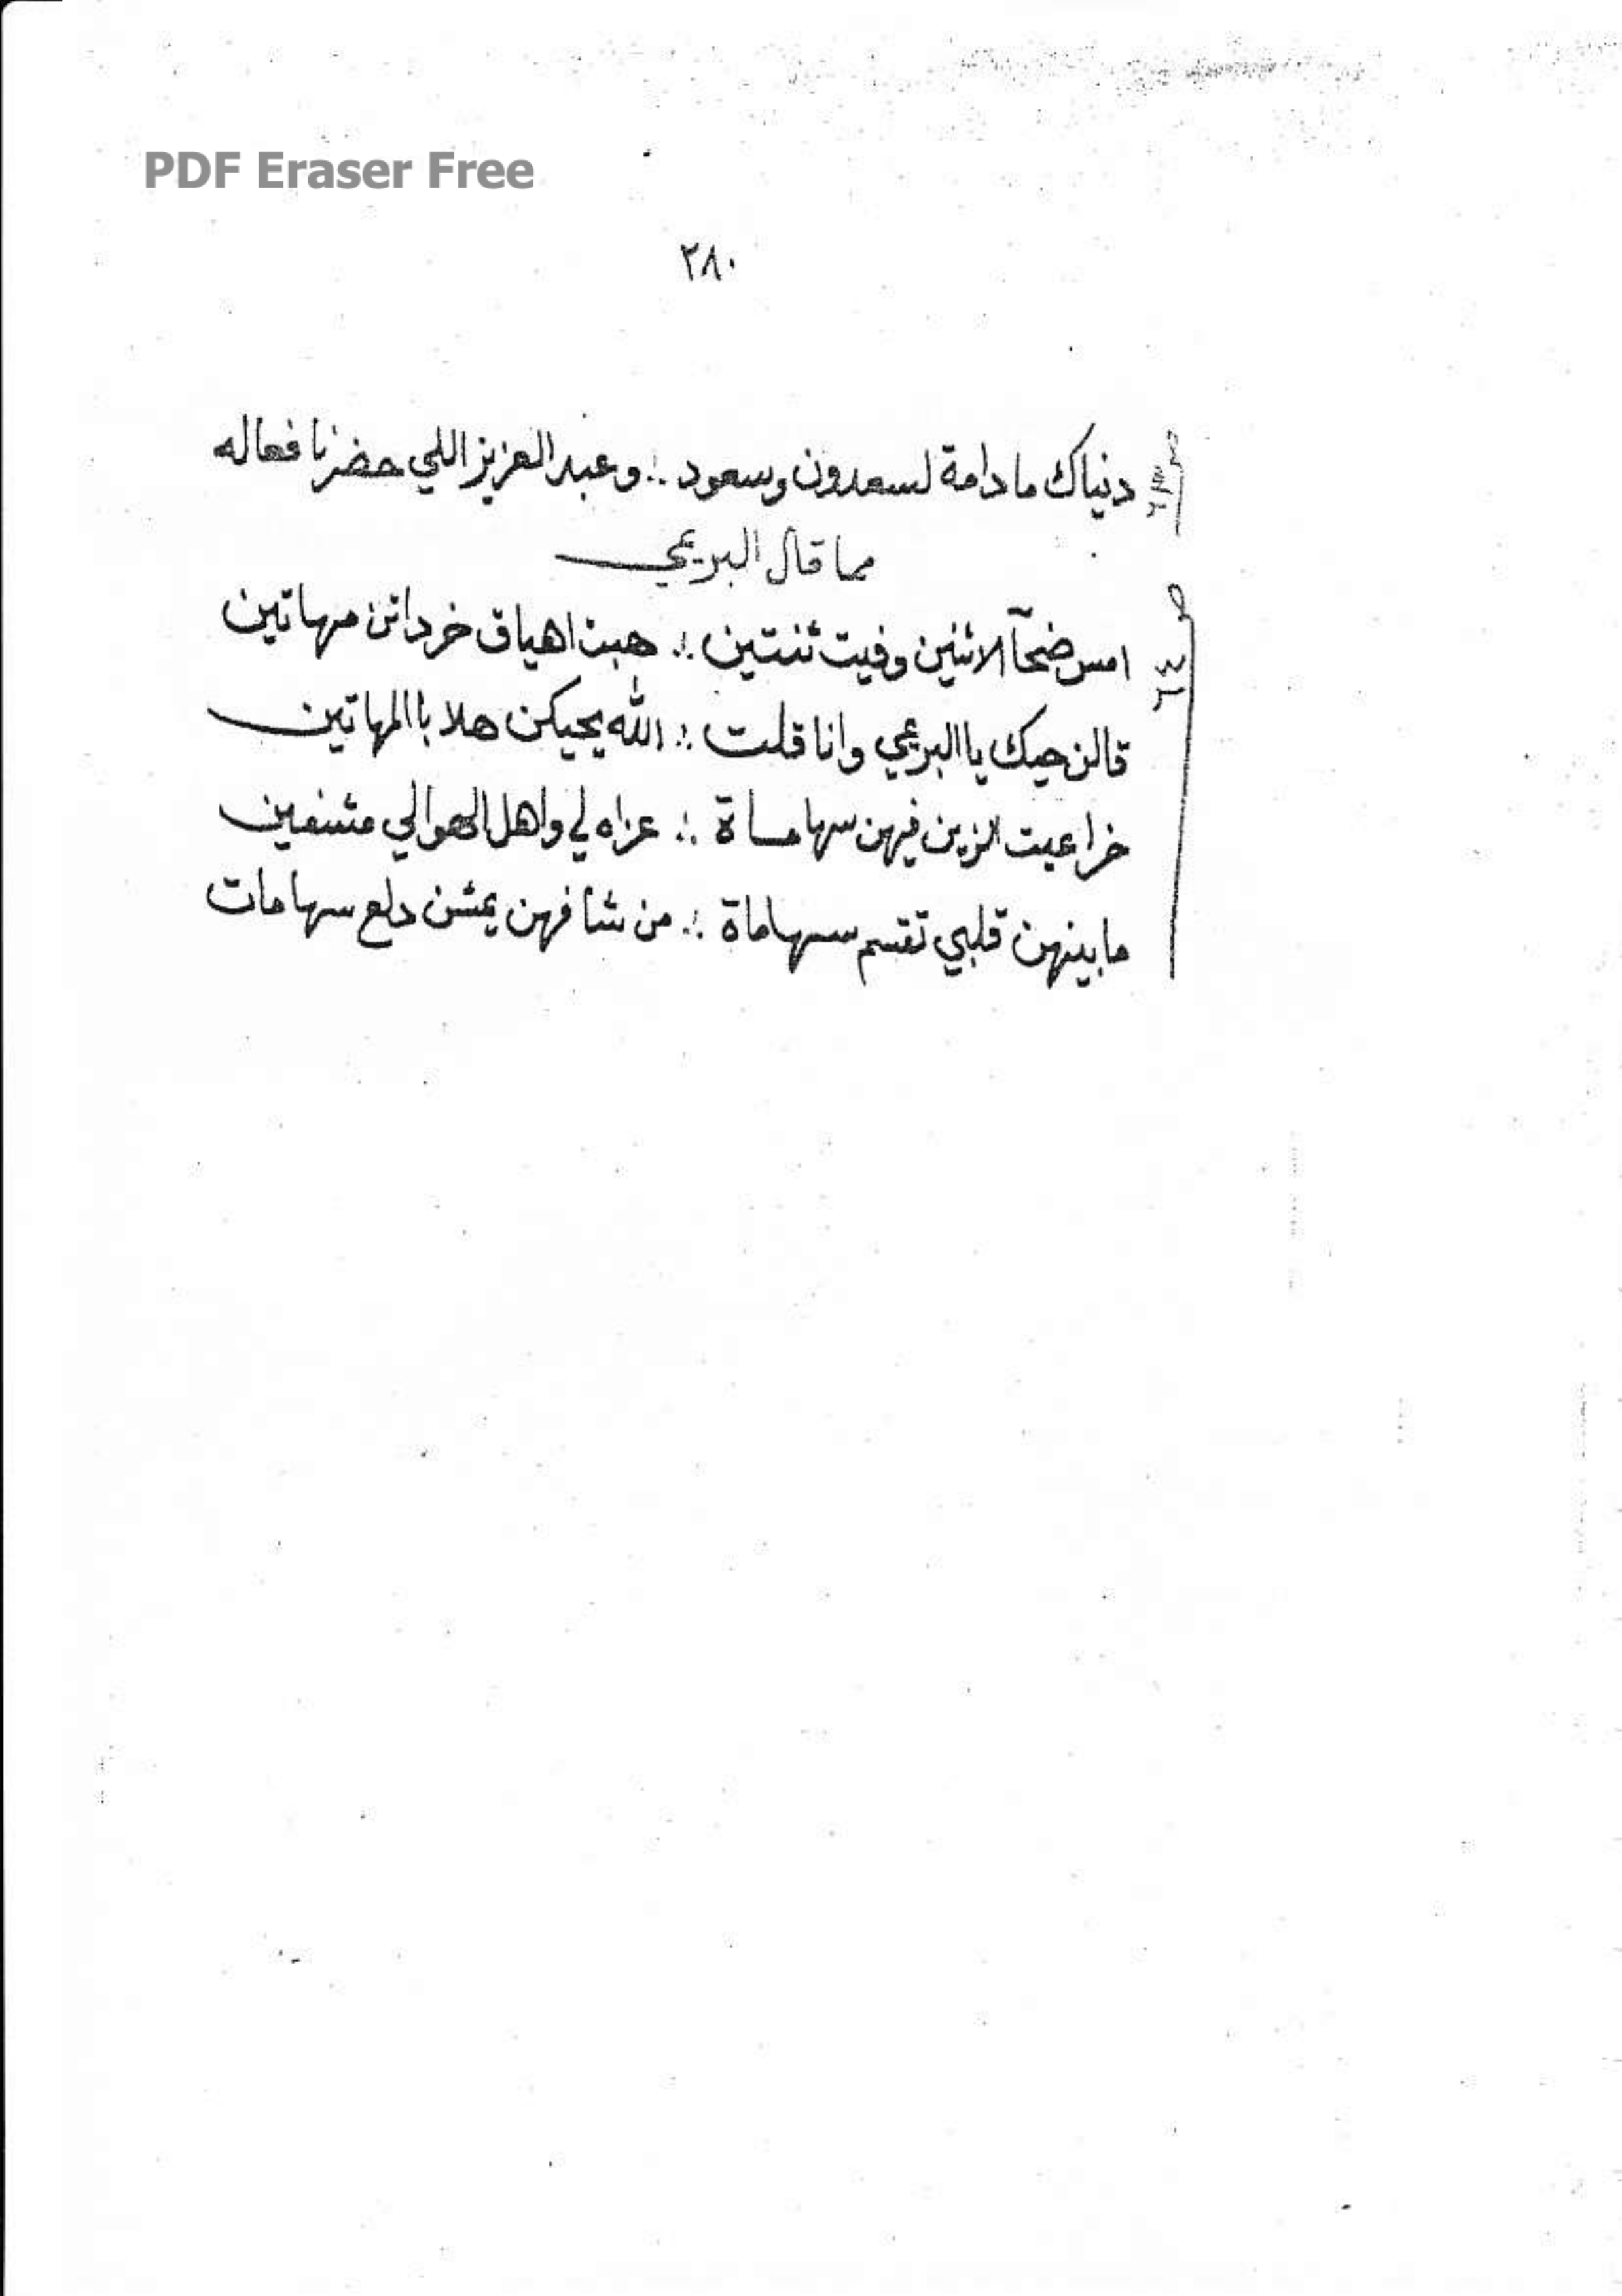 PDF Eraser Free
٢٨٠
دنياك ما دامة لسعدون وسعود ∴ وعبد العزيز اللي حضرنا فعاله
مما قال البريعي
امس ضحآ الاثنين وفيت ثنتين ∴ هبت اهياق خرداتن مهاتين
قالن حيك يا البرعي وانا قلت ∴ الله يحيكن هلا باالمهاتين
خراعيت الزين فيهن سهامساة ∴ عزاه لي واهل الهوالي مشفين
مابينهن قلبي تقسم سهاماة ∴ من شافهن يمشن دلع سهامات